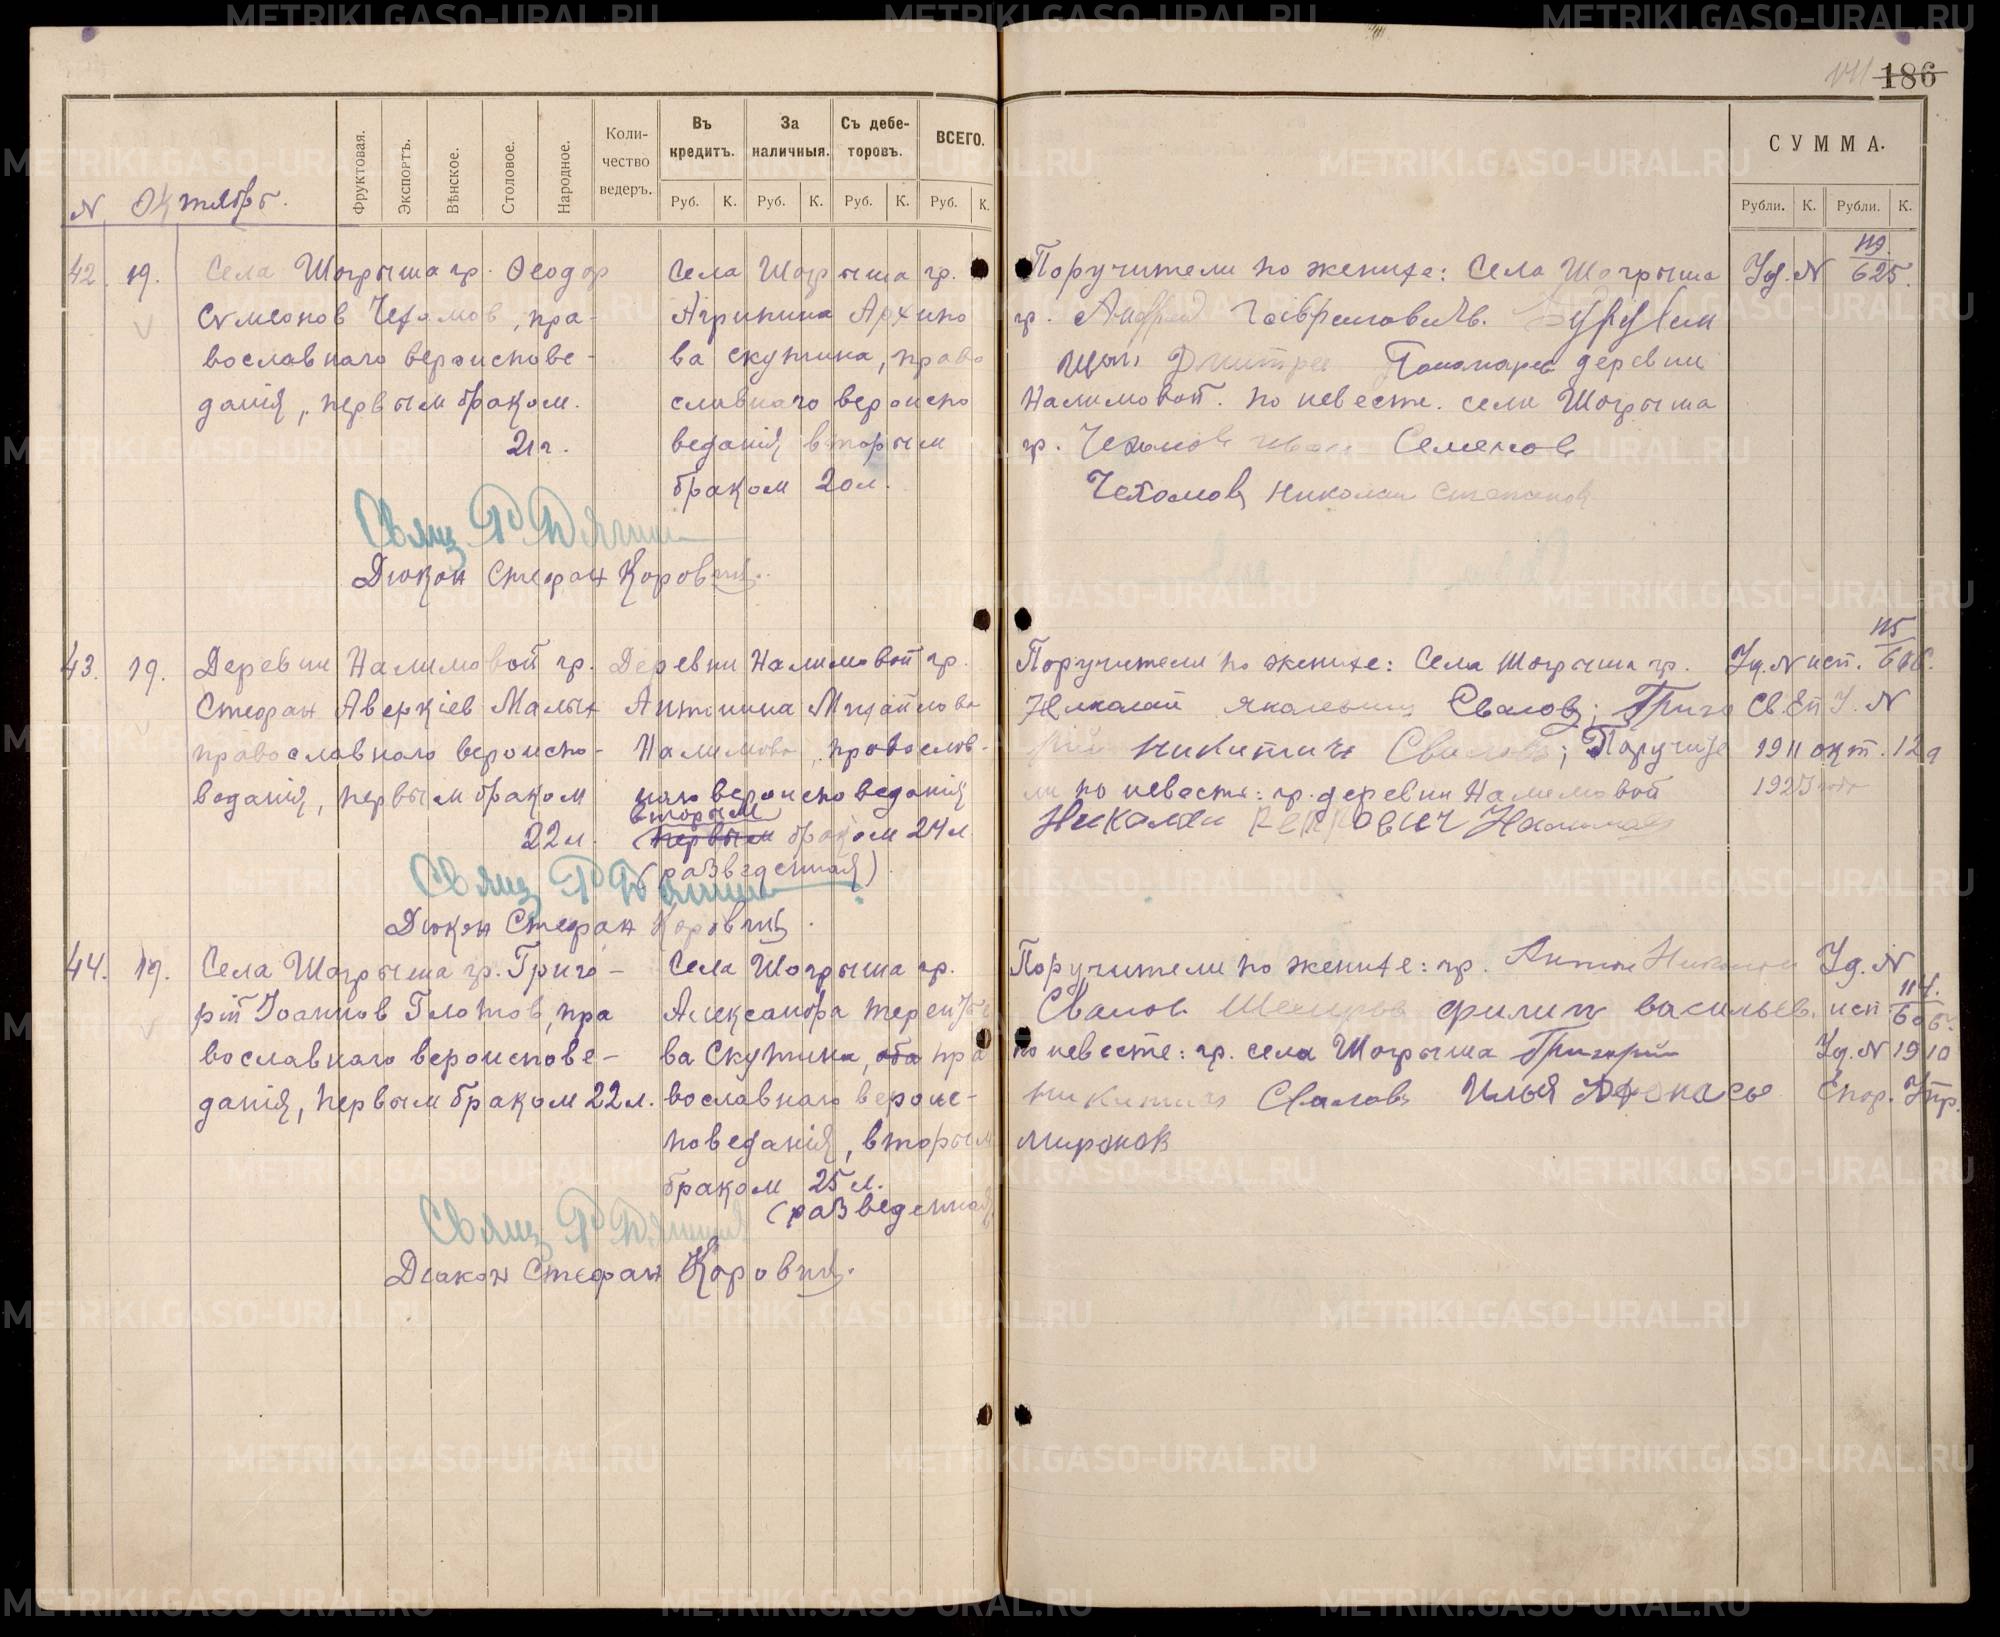 186
Фруктовая.
Экспортъ.
Вѣнское.
Столовое.
Народное.
Коли-
чество
ведеръ.
Въ
кредитъ.
За
наличныя.
Съ дебе-
торовъ.
ВСЕГО.
Руб. К. Руб. К. Руб. К. Руб. К.
СУММА.
Рубли. К. Рубли. К.
N Октябрь.
42. 19.
Села Шогрыша гр. Ѳеодор
Сѵмеонов Чехомов, пра-
вославнаго вероиспове-
данія, первым браком.
21 г.
Села Шогрыша гр.
Агрипина Архипо
ва Скутина, право
славнаго вероиспо
веданія вторым
браком 20 л.
Свящ
Диакон Стефан Коровин.
Поручители по женихе: Села Шогрыша
гр. Андрей Гавриловичь
Дмитрей деревни
Налимовой. по невесте. села Шогрыша
гр. Чехомов Иван Семенов
Чехомовъ Николаи Степанов
Уд. N 119
625.
43. 19.
Деревни Налимовой гр.
Стефан Аверкіев Малых
православнаго вероиспо-
веданія, первым браком
22 л.
Деревни Налимовой гр.
Антонина Михайлова
Налимова, православ-
наго вероисповеданія
вторым
первым браком 24 л
(разведенная)
Свящ
Диакон Стефан Коровин.
Поручители по женихе: Села Шогрыша гр.
Николай Сваловъ; Григо
рий Никитичь Сваловъ; Поручите
ли по невесте: гр. деревни Налимовой
Николаи Петрович Налимов
Уд. N исп. 115
606.
Св. Еп. У. N
1911 окт. 12 д
1923 года
44. 19.
Села Шогрыша гр. Григо-
рій Іоаннов Глотов, пра
вославнаго вероиспове-
данія, первым браком 22 л.
Села Шогрыша гр.
Александра Терентье
ва Скутина, оба пра
вославнаго вероис-
поведанія, вторым
браком 25 л.
(разведенная)
Свящ
Диакон Стефан Коровин.
Поручители по женихе: гр. Антон
Свалов. Филип Васильев.
по невесте: гр. села Шогрыша Григорий
Никитичь Сваловъ Илья Афонасье
Миронов
Уд. N
исп. 114.
606.
Уд. N 1910
Епар. Упр.
METRIKI.GASO-URAL.RU